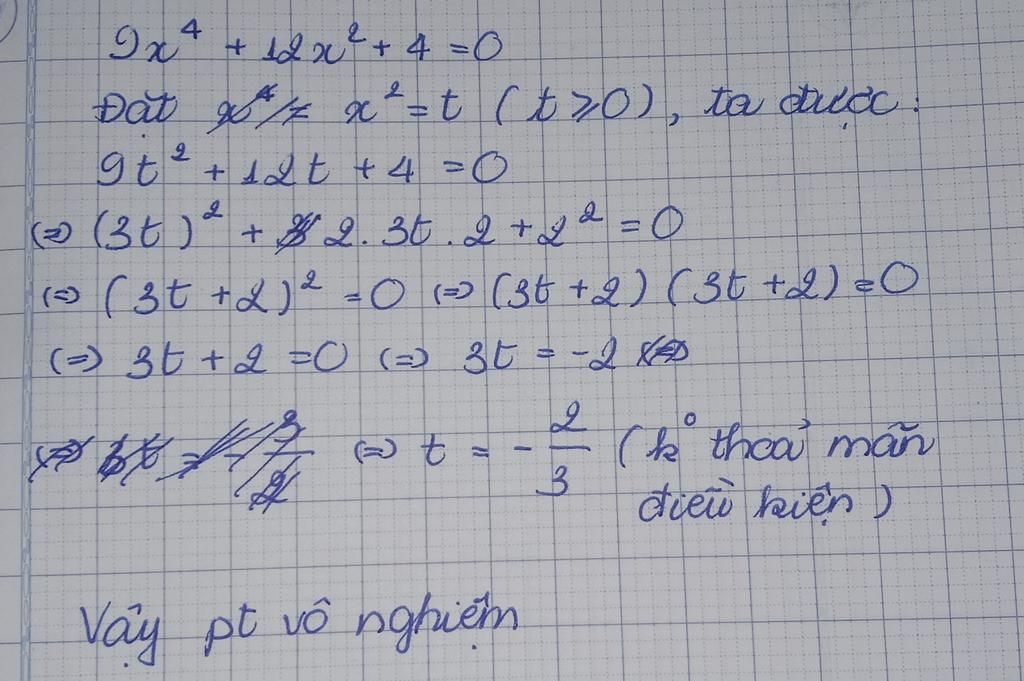 9x⁴ + 12x² + 4 = 0
Đặt x² = t (t ≥ 0), ta được:
9t² + 12t + 4 = 0
⇔ (3t)² + 2. 3t . 2 + 2² = 0
⇔ (3t + 2)² = 0 ⇔ (3t + 2) (3t + 2) = 0
⇔ 3t + 2 = 0 ⇔ 3t = -2
⇔ t = - 2/3 (k° thoả mãn
điều kiện)
Vậy pt vô nghiệm